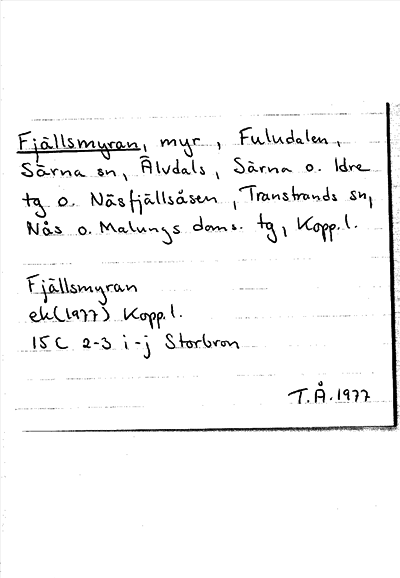 Fjällsmyran, myr, Fuludalen,
Särna sn, Älvdals, Särna o. Idre
tg o. Näsfjällsåsen, Transtrands sn,
Nås o. Malungs doms. tg, Kopp.l.
Fjällsmyran
ek(1977) Kopp.l.
15C 2-3 i-j Storbron
T.Å.1977